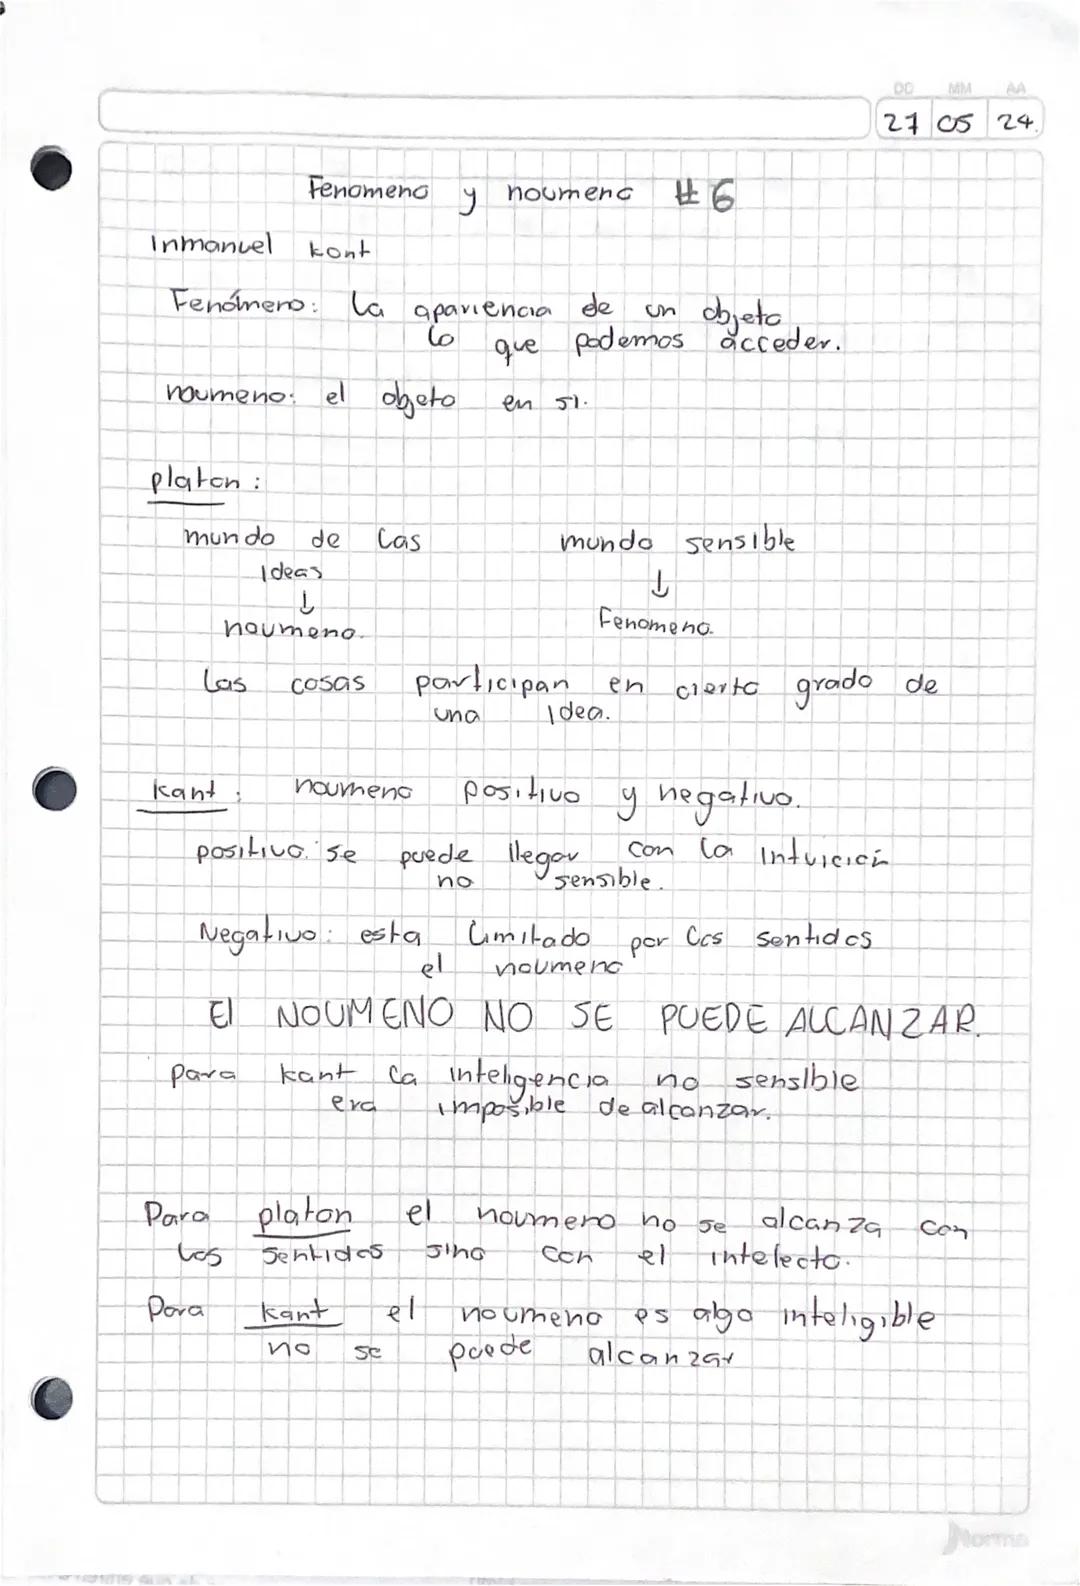 DD MM AA
27 05 24.
Fenomeno y noumeno #6
Inmanuel kant
Fenómeno: la apariencia de un objeto
lo que podemos acceder.
noumeno: el objeto en si.
platon:
mundo de las mundo sensible
Ideas
↓ ↓
noumeno. Fenomeno.
las cosas participan en cierto grado de
una Idea.
kant: noumeno positivo y negativo.
positivo: se puede llegar con la intuición
no sensible.
Negativo: esta limitado por los sentidos
el noumeno
El NOUMENO NO SE PUEDE ALCANZAR.
para kant la inteligencia no sensible
era imposible de alcanzar.
Para platon el noumeno no se alcanza con
los sentidos sino con el intelecto.
Para kant el noumeno es algo inteligible
no se puede alcanzar
Norma